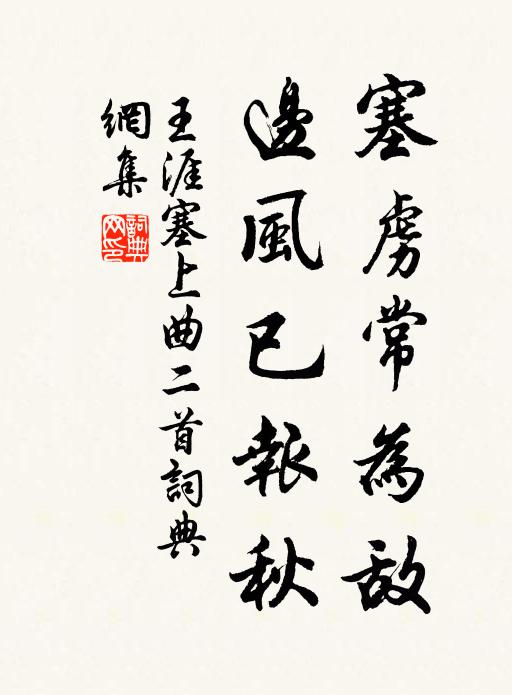 塞虜常為敵
邊風已報秋
王涯塞上曲二首詞典
網集
詞典網印